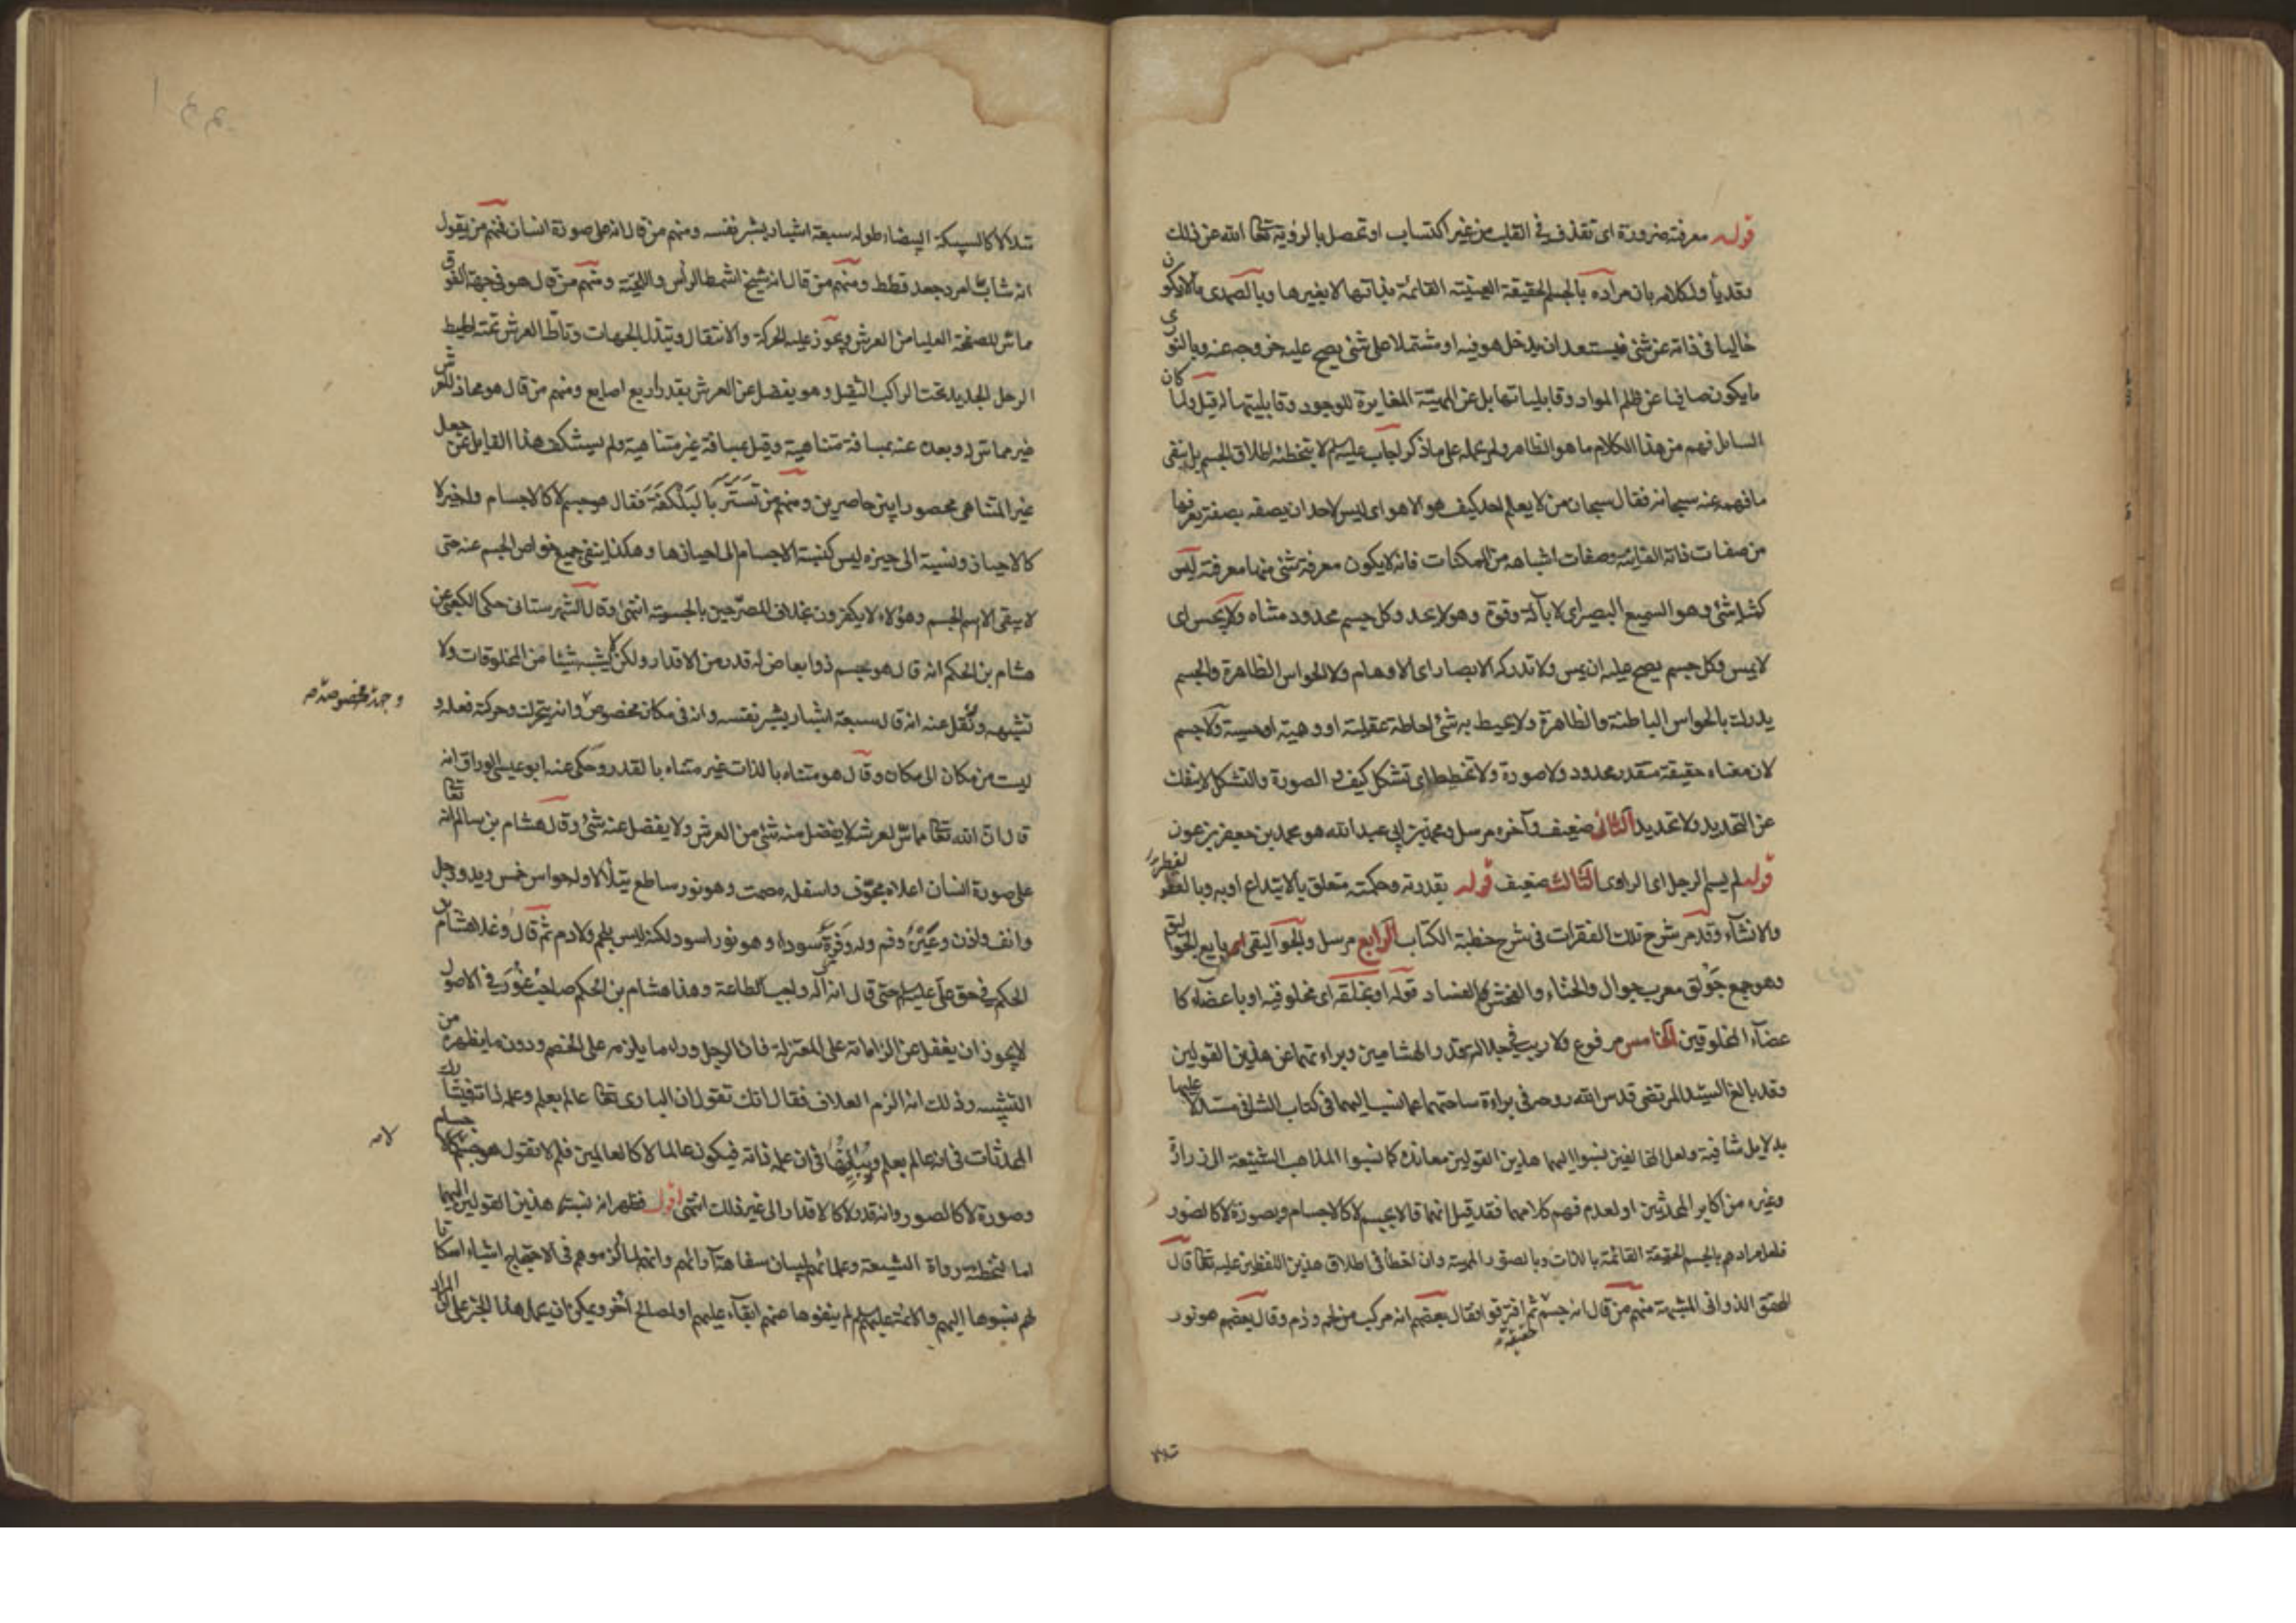 قوله معرفته ضرورة اى تقذف فى القلب من غير اكتساب او تحصل بالرؤية تعالى الله عن ذلك
وقد يأول كلامه بان مراده بالجسم الحقيقة العينية القائمة بذاتها لا بغيرها وبالصمدى ما لا يكون
خاليا فى ذاته عن شئ فيستعد ان يدخل هو فيه او مشتملا على شئ يصح عليه خروجه عنه وبالنورى
ما يكون صافيا عن ظلم المواد وقابلياتها بل عن المهية المغايرة للوجود وقابليتها له قيل ولما كان
السائل فهم من هذا الكلام ما هو الظاهر ولم يحمله على ما ذكر اجاب عليه لم لا بتخطئه اطلاق الجسم بل بنفى
ما فهمه عنه سبحانه فقال سبحان من لا يعلم احد كيف هو الا هو اى ليس لاحد ان يصفه بصفة يعرفها
من صفات ذاته الفانية وصفات اشباهه من الممكنات فانه لا يكون معرفة شئ منها معرفته ليس
كمثله شئ وهو السميع البصير اى لا بآلة وقوة وهو لا يحد وكل جسم محدود متناه ولا يحس اى
لا يمس وكل جسم يصح عليه ان يمس ولا تدركه الابصار اى الاوهام ولا الحواس الظاهرة والجسم
يدرك بالحواس الباطنة والظاهرة ولا يحيط به شئ احاطة عقلية او وهمية او حسية ولا جسم
لان معناه حقيقة متقدر محدود ولا صورة ولا تخطيط اى تشكل كيف و الصورة والتشكل لا ينفك
عن التحديد ولا تحديد الثانى ضعيف وآخره مرسل ومحمد بن ابى عبد الله هو محمد بن جعفر بن عون
قوله لم يسم الرجل اى الراوى الثالث ضعيف قوله بقدرته وحكمته متعلق بالابتداع او به وبالفطر
لفطر
والانشآء وقد مر شرح تلك الفقرات فى شرح خطبة الكتاب الرابع مرسل والجواليقى اى بايع الجواليق
وهو جمع جولق معرب جوال والخناء والفحش الفساد قوله او بخلقه اى مخلوقيه او باعضآء كا
عضآء المخلوقين الخامس مرفوع ولا ريب فى جلالة قدر الهشامين وبراءتهما عن هذين القولين
وقد بالغ السيد المرتضى قدس الله روحه فى براءة ساحتهما عما نسب اليهما فى كتاب الشافى مستدلا عليها
بدلايل شافية ولعل المخالفين نسبوا اليهما هذين القولين معاندة كما نسبوا المذاهب الشنيعة الى زرارة
وغيره من اكابر المحدثين او لعدم فهم كلامهما فقد قيل انهما قالا بجسم لا كالاجسام وبصورة لا كالصور
فلعل مرادهم بالجسم الحقيقة القائمة بالذات وبالصورة المهية وان اخطأ فى اطلاق هذين اللفظين عليه تعالى قال
المحقق الدوانى المشبهة منهم من قال انه جسم ثم افترقوا فقال بعضهم انه مركب من لحم و دم وقال بعضهم هو نور
حقيقة
تتلالا
تتلالا كالسبيكة البيضاء طوله سبعة اشبار بشبر نفسه ومنهم من قال انه على صورة انسان فمنهم من يقول
انه شاب امرد جعد قطط ومنهم من قال انه شيخ اشمط الرأس واللحية ومنهم من قال هو فى جهة الفوق
مماس للصفحة العليا من العرش ويجوز عليه الحركة والانتقال وتبدل الجهات وتاطّ العرش تحته اطيط
الرحل الجديد تحت الراكب الثقيل وهو يفضل عن العرش بقدر اربع اصابع ومنهم من قال هو محاذ للعرش
غير مماس له وبعده عنه بمسافة متناهية وقيل بمسافة غير متناهية ولم يستنكف هذا القايل عن جعل
غير المتناهى محصورا بين حاصرين ومنهم من تستر بالبلكفة فقال هو جسم لا كالاجسام وله حيز لا
كالاحياز ونسبته الى حيزه ليس كنسبة الاجسام الى احيازها وهكذا ينفى جميع خواص الجسم عنه حتى
لا يبقى الا اسم الجسم وهؤلاء لا يكفرون بخلاف المصرحين بالجسمية انتهى وقال الشهرستانى حكى الكعبى عن
هشام بن الحكم انه قال هو جسم ذو ابعاض له قدر من الاقدار ولكن لا يشبه شيئا من المخلوقات ولا
تشبهه ونقل عنه انه قال سبعة اشبار بشبر نفسه وانه فى مكان مخصوص وانه يتحرك وحركته فعله و
وجهة مخصوصة صح
ليست من مكان الى مكان وقال هو متناه بالذات غير متناه بالقدر وحكى عنه ابو عيسى الوراق انه
قال ان الله تعالى مماس لعرشه لا يفضل منه شئ من العرش ولا يفضل عنه شئ وقال هشام بن سالم انه تعالى
على صورة انسان اعلاه مجوف واسفله مصمت وهو نور ساطع يتلألأ وله حواس خمس ويد ورجل
وانف واذن وعين وفم وله وفرة سوداء وهو نور اسود لكنه ليس بلحم ولا دم ثم قال وغلا هشام بن
الحكم فى حق على عليه لم حتى قال انه آله واجب الطاعة وهذا هشام بن الحكم صاحب غور فى الاصول
لا يجوز ان يغفل عن الزاماته على المعتزلة فان الرجل وراء ما يلزمه على الخصم ودون ما يظهره من
التشبيه وذلك انه الزم العلاف فقال انك تقول ان البارى تعالى عالم بعلم وعلمه ذاته فيشارك
المحدثات فى انه عالم بعلم ويباينها فى ان علمه ذاته فيكون عالما لا كالعالمين فلم لا تقول هو جسم لا كالاجسام
لانه
وصورة لا كالصور وانه قدر لا كالاقدار الى غير ذلك انتهى اقول فظهر ان نسبة هذين القولين اليهما
اما لتخطئة رواة الشيعة وعلمائهم لبيان سفاهة آرائهم وانهم لما الزموهم فى الاحتجاج اشياء اسكاتا
لهم نسبوها اليهم والائمة عليهم لم لم ينفوها عنهم ابقآء عليهم او لمصالح اخر ويمكن ان يحمل هذا الخبر على ان المراد